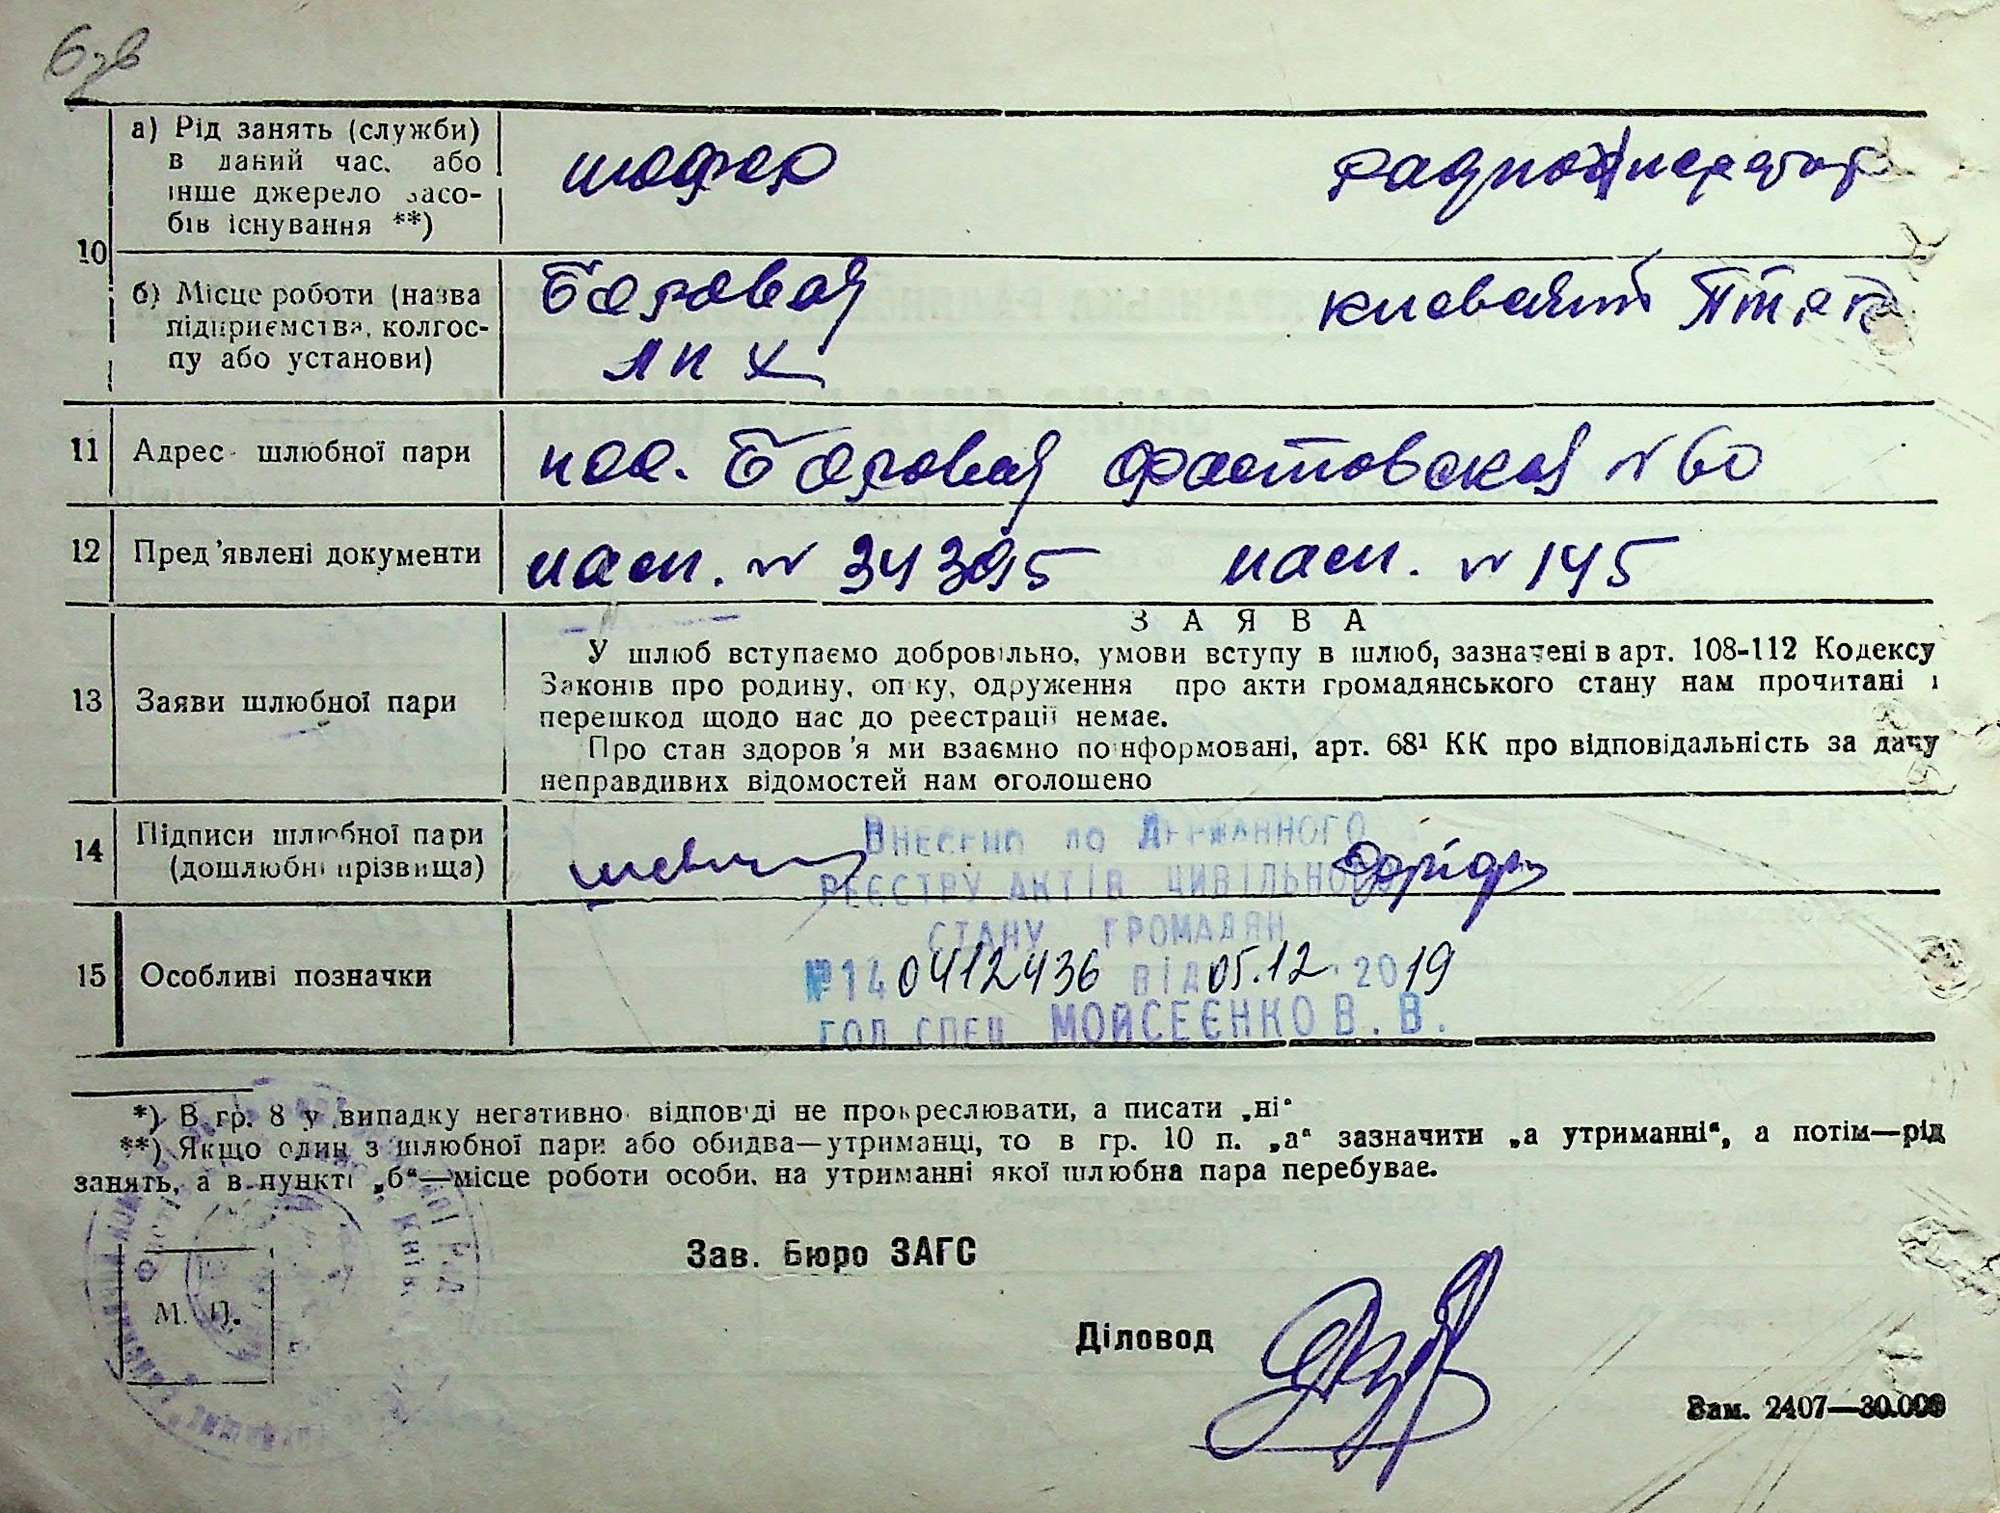 6зв
10
а) Рід занять (служби)
в даний час, або
інше джерело засо-
бів існування **)
шофер
радиооператор
б) Місце роботи (назва
підприємства, колгос-
пу або установи)
Боровая
ЛПХ
киевский
11 Адрес шлюбної пари
пос. Боровая Фастовская № 60
12 Пред'явлені документи
пасп. № 34395 пасп. № 145
ЗАЯВА
13 Заяви шлюбної пари
У шлюб вступаємо добровільно, умови вступу в шлюб, зазначені в арт. 108-112 Кодексу
Законів про родину, опіку, одруження про акти громадянського стану нам прочитані і
перешкод щодо нас до реєстрації немає.
Про стан здоров'я ми взаємно поінформовані, арт. 68¹ КК про відповідальність за дачу
неправдивих відомостей нам оголошено
14 Підписи шлюбної пари
(дошлюбні прізвища)
Внесено до Державного
реєстру актів цивільного
стану громадян
№ 140412436 від 05.12.2019
гол спец Мойсеєнко В. В.
15 Особливі позначки
*) В гр. 8 у випадку негативно відповіді не прокреслювати, а писати „ні“
**) Якщо один з шлюбної пари або обидва—утриманці, то в гр. 10 п. „а“ зазначити „а утриманні“, а потім—рід
занять, а в пункті „б“—місце роботи особи, на утриманні якої шлюбна пара перебуває.
Зав. Бюро ЗАГС
М. П.
Діловод
Зам. 2407—30.000